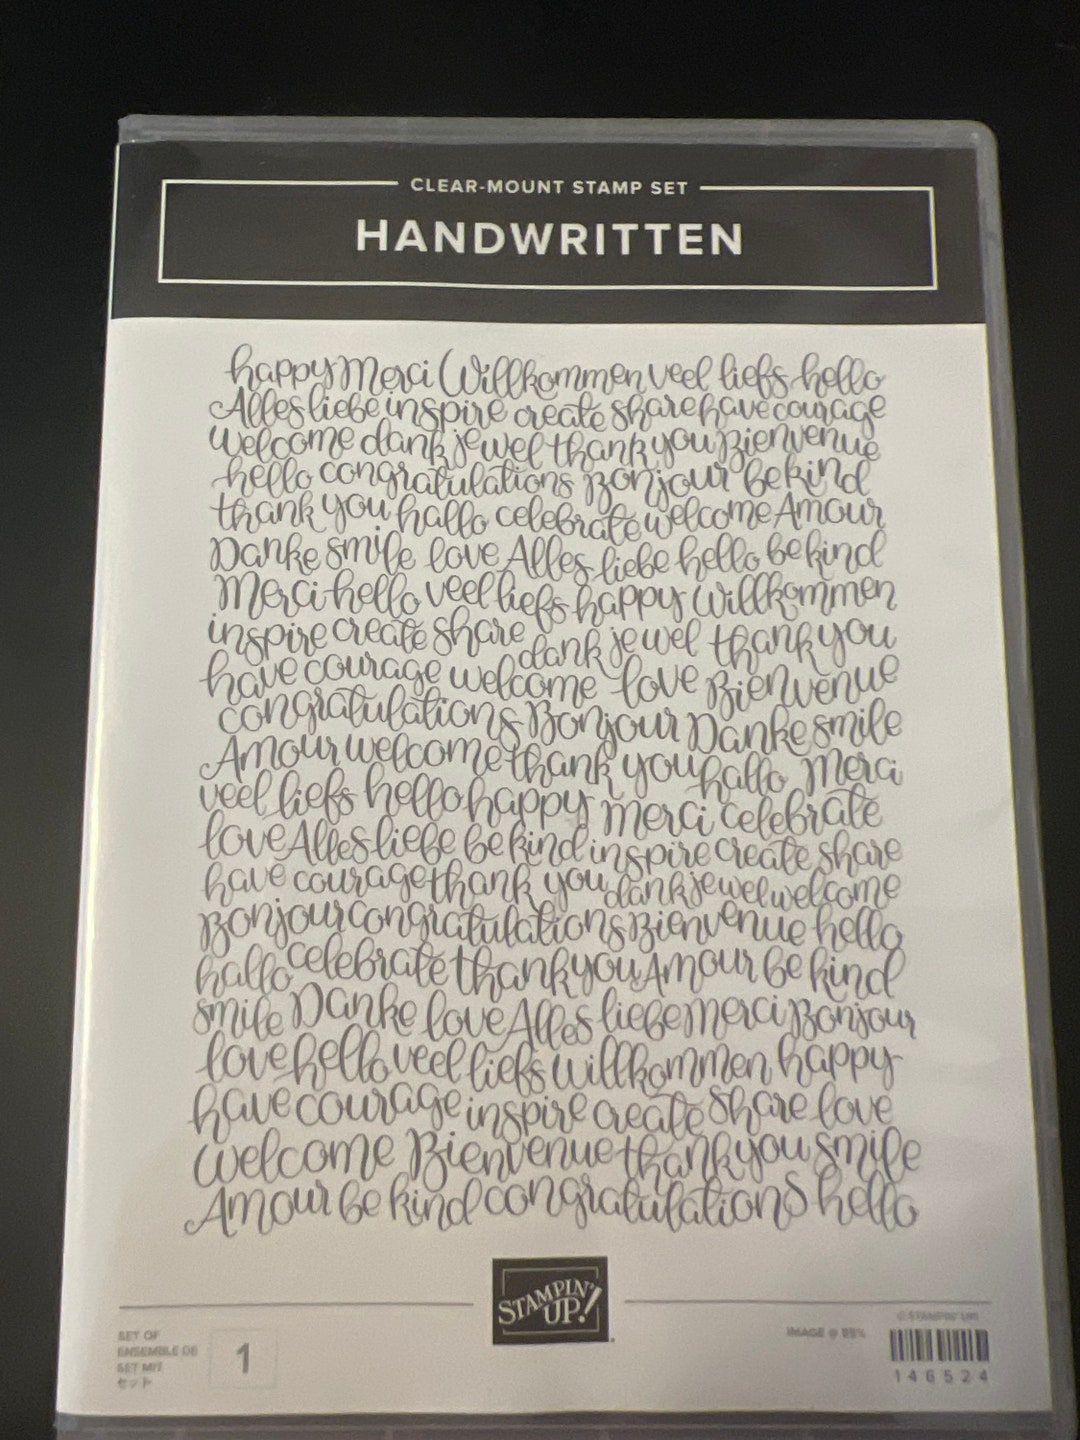 CLEAR-MOUNT STAMP SET
HANDWRITTEN
happy Merci Willkommen veel liefs hello
Alles liebe inspire create share have courage
welcome dank je wel thank you Bienvenue
hello congratulations Bonjour be kind
thank you hallo celebrate welcome Amour
Danke smile love Alles liebe hello be kind
Merci hello veel liefs happy Willkommen
inspire create share dank je wel thank you
have courage welcome love Bienvenue
congratulations Bonjour Danke smile
Amour welcome thank you hallo Merci
veel liefs hello happy Merci celebrate
love Alles liebe be kind inspire create share
have courage thank you dank je wel welcome
Bonjour congratulations Bienvenue hello
hallo celebrate thank you Amour be kind
smile Danke love Alles liebe Merci Bonjour
love hello veel liefs Willkommen happy
have courage inspire create share love
welcome Bienvenue thank you smile
Amour be kind congratulations hello
STAMPIN' UP!
SET OF
ENSEMBLE DE
SET MIT
セット
1
IMAGE @ 85%
© STAMPIN' UP!
146524